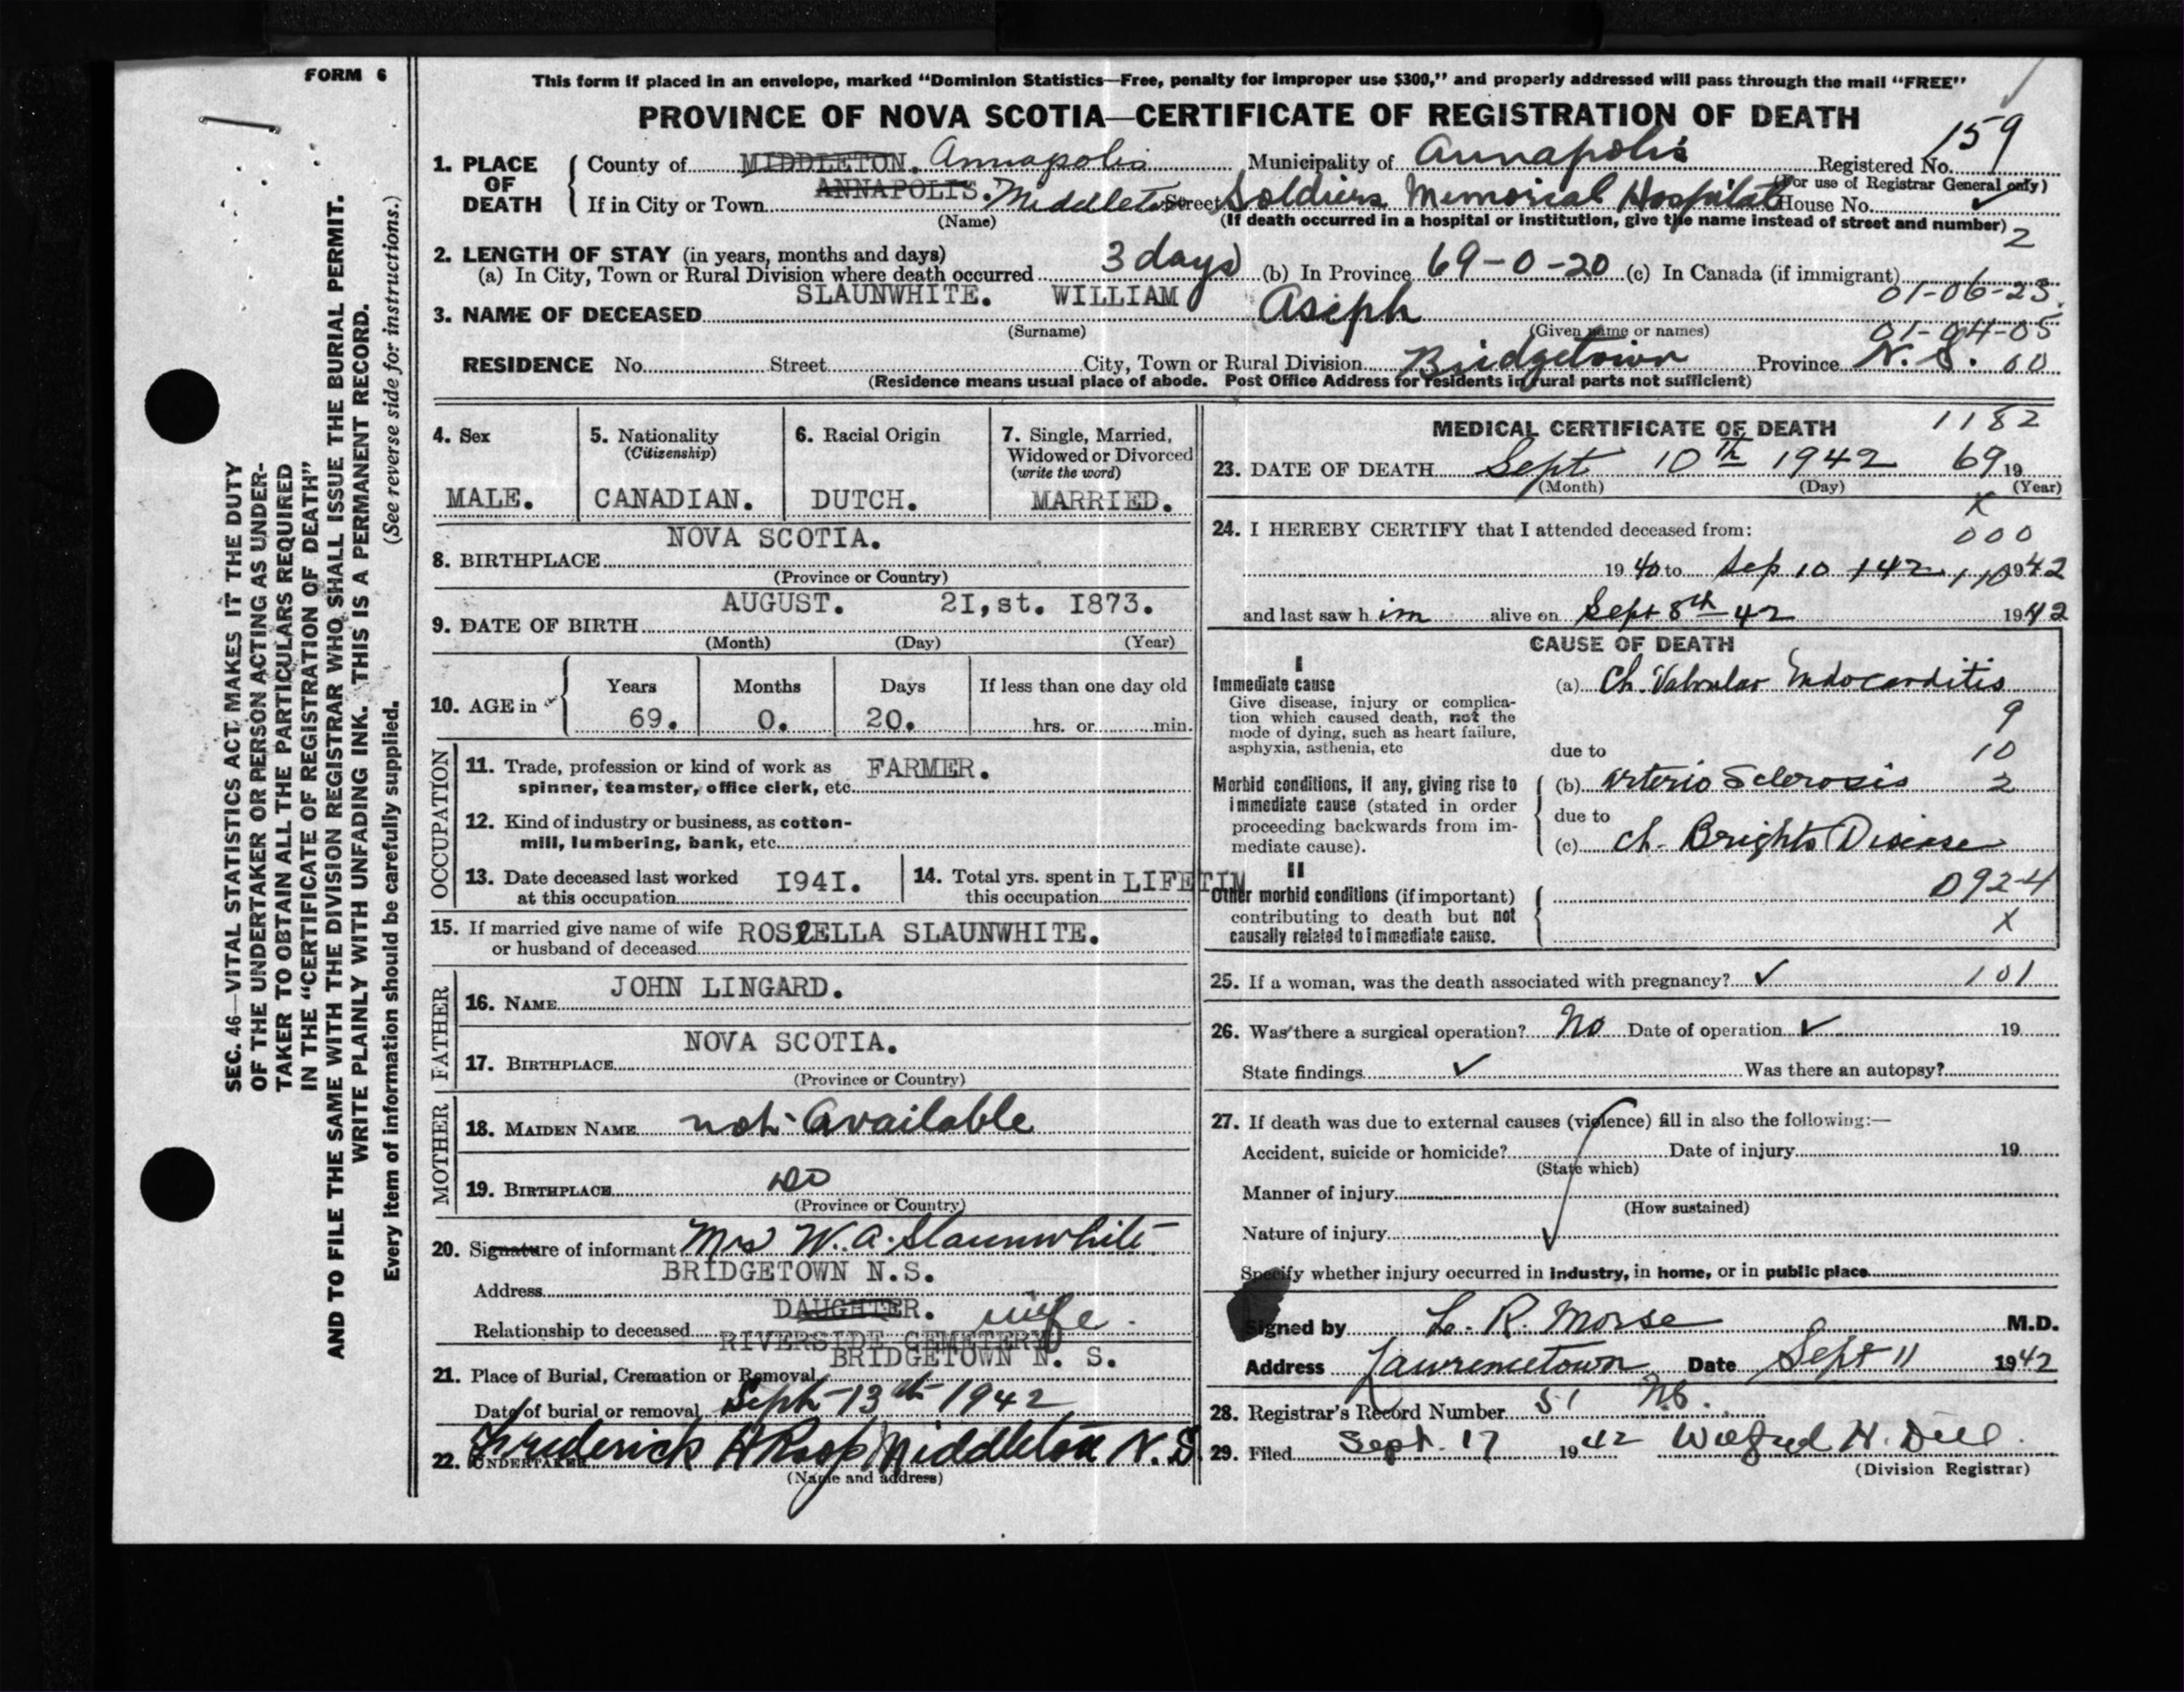 FORM 6
This form if placed in an envelope, marked “Dominion Statistics—Free, penalty for improper use $300,” and properly addressed will pass through the mail “FREE”
PROVINCE OF NOVA SCOTIA—CERTIFICATE OF REGISTRATION OF DEATH
159
1. PLACE OF DEATH
County of MIDDLETON. Annapolis Municipality of Annapolis Registered No.
(For use of Registrar General only)
If in City or Town ANNAPOLIS. Middleton Street Soldiers Memorial Hospital House No. ✓
(Name) (If death occurred in a hospital or institution, give the name instead of street and number)
2
2. LENGTH OF STAY (in years, months and days)
(a) In City, Town or Rural Division where death occurred 3 days (b) In Province 69-0-20 (c) In Canada (if immigrant)
01-06-23.
3. NAME OF DECEASED SLAUNWHITE. WILLIAM Aseph
(Surname) (Given name or names)
01-04-05
RESIDENCE No. Street City, Town or Rural Division Bridgetown Province N.S. 60
(Residence means usual place of abode. Post Office Address for residents in rural parts not sufficient)
4. Sex
MALE.
5. Nationality
(Citizenship)
CANADIAN.
6. Racial Origin
DUTCH.
7. Single, Married,
Widowed or Divorced
(write the word)
MARRIED.
8. BIRTHPLACE NOVA SCOTIA.
(Province or Country)
9. DATE OF BIRTH AUGUST. 2I,st. I873.
(Month) (Day) (Year)
10. AGE in
Years Months Days If less than one day old
69. 0. 20. hrs. or min.
OCCUPATION
11. Trade, profession or kind of work as FARMER.
spinner, teamster, office clerk, etc.
12. Kind of industry or business, as cotton-
mill, lumbering, bank, etc.
13. Date deceased last worked I94I.
at this occupation
14. Total yrs. spent in LIFETIM
this occupation
15. If married give name of wife ROSEELLA SLAUNWHITE.
or husband of deceased
FATHER
16. NAME JOHN LINGARD.
17. BIRTHPLACE NOVA SCOTIA.
(Province or Country)
MOTHER
18. MAIDEN NAME not available
19. BIRTHPLACE do
(Province or Country)
20. Signature of informant Mrs W. A. Slaunwhite
Address BRIDGETOWN N.S.
Relationship to deceased DAUGHTER. wife.
RIVERSIDE CEMETERY
21. Place of Burial, Cremation or Removal BRIDGETOWN N. S.
Date of burial or removal Sept-13th-1942
22. UNDERTAKER Frederick H Roop Middleton N.S.
(Name and address)
MEDICAL CERTIFICATE OF DEATH 1182
23. DATE OF DEATH Sept 10th 1942 69 19
(Month) (Day) (Year)
X
24. I HEREBY CERTIFY that I attended deceased from: 000
19 40 to Sep 10 142 110 1942
and last saw h im alive on Sept 8th 42 1942
CAUSE OF DEATH
I
Immediate cause (a) Ch. Valvular Endocarditis
Give disease, injury or complica-
tion which caused death, not the
mode of dying, such as heart failure,
asphyxia, asthenia, etc
9
due to 10
Morbid conditions, if any, giving rise to
immediate cause (stated in order
proceeding backwards from im-
mediate cause).
(b) Arterio Sclerosis 2
due to
(c) Ch. Brights Disease
II
Other morbid conditions (if important) 092-4
contributing to death but not
causally related to immediate cause. X
25. If a woman, was the death associated with pregnancy? ✓ 101
26. Was there a surgical operation? No Date of operation ✓ 19
State findings ✓ Was there an autopsy?
27. If death was due to external causes (violence) fill in also the following:—
Accident, suicide or homicide? Date of injury 19
(State which)
Manner of injury
(How sustained)
Nature of injury ✓
Specify whether injury occurred in industry, in home, or in public place
Signed by L. R. Morse M.D.
Address Lawrencetown Date Sept 11 1942
28. Registrar's Record Number 51 N.S.
29. Filed Sept. 17 1942 Wilfred H. Dill.
(Division Registrar)
SEC. 46—VITAL STATISTICS ACT, MAKES IT THE DUTY
OF THE UNDERTAKER OR PERSON ACTING AS UNDER-
TAKER TO OBTAIN ALL THE PARTICULARS REQUIRED
IN THE “CERTIFICATE OF REGISTRATION OF DEATH”
AND TO FILE THE SAME WITH THE DIVISION REGISTRAR WHO SHALL ISSUE THE BURIAL PERMIT.
WRITE PLAINLY WITH UNFADING INK. THIS IS A PERMANENT RECORD.
Every item of information should be carefully supplied. (See reverse side for instructions.)